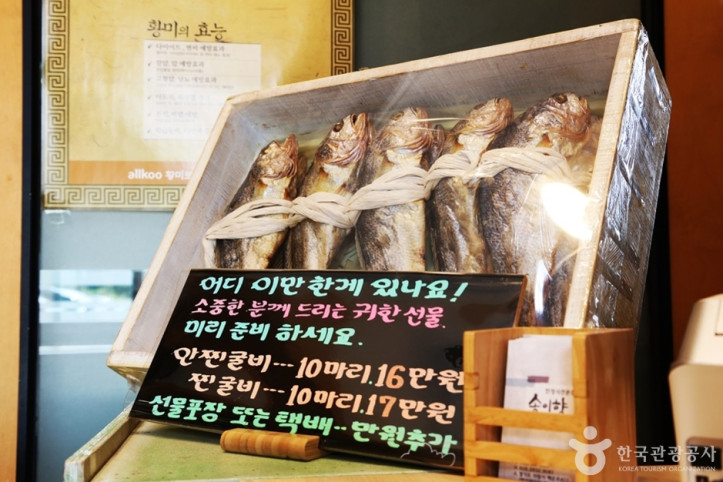 황미의 효능
allkoo 황미
어디 이만한게 있나요!
소중한 분께 드리는 귀한 선물.
미리 준비 하세요.
안찐굴비--- 10마리.16만원
찐굴비--- 10마리.17만원
선물포장 또는 택배-- 만원추가
송이향
한국관광공사
KOREA TOURISM ORGANIZATION